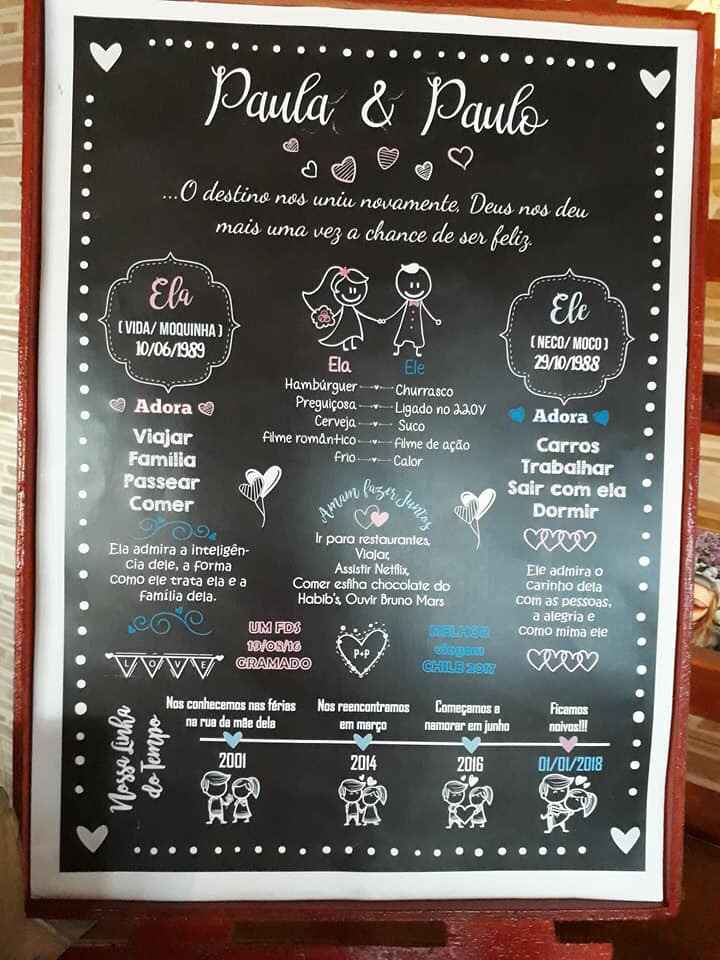 Paula & Paulo
...O destino nos uniu novamente, Deus nos deu
mais uma vez a chance de ser feliz.
Ela
( VIDA/ MOQUINHA )
10/06/1989
Adora
Viajar
Família
Passear
Comer
Ela admira a inteligên-
cia dele, a forma
como ele trata ela e a
família dela.
LOVE
Ela Ele
Hambúrguer Churrasco
Preguiçosa Ligado no 220V
Cerveja Suco
filme romântico filme de ação
frio Calor
Amam fazer Juntos
Ir para restaurantes,
Viajar,
Assistir Netflix,
Comer esfiha chocolate do
Habib's, Ouvir Bruno Mars
UM FDS
19/08/16
GRAMADO
P+P
MELHOR
viagem
CHILE 2017
Ele
( NECO/ MOCO )
29/10/1988
Adora
Carros
Trabalhar
Sair com ela
Dormir
Ele admira o
carinho dela
com as pessoas,
a alegria e
como mima ele
Nossa Linha
do Tempo
Nos conhecemos nas férias
na rua da mãe dela
2001
Nos reencontramos
em março
2014
Começamos a
namorar em junho
2016
Ficamos
noivos!!!
01/01/2018